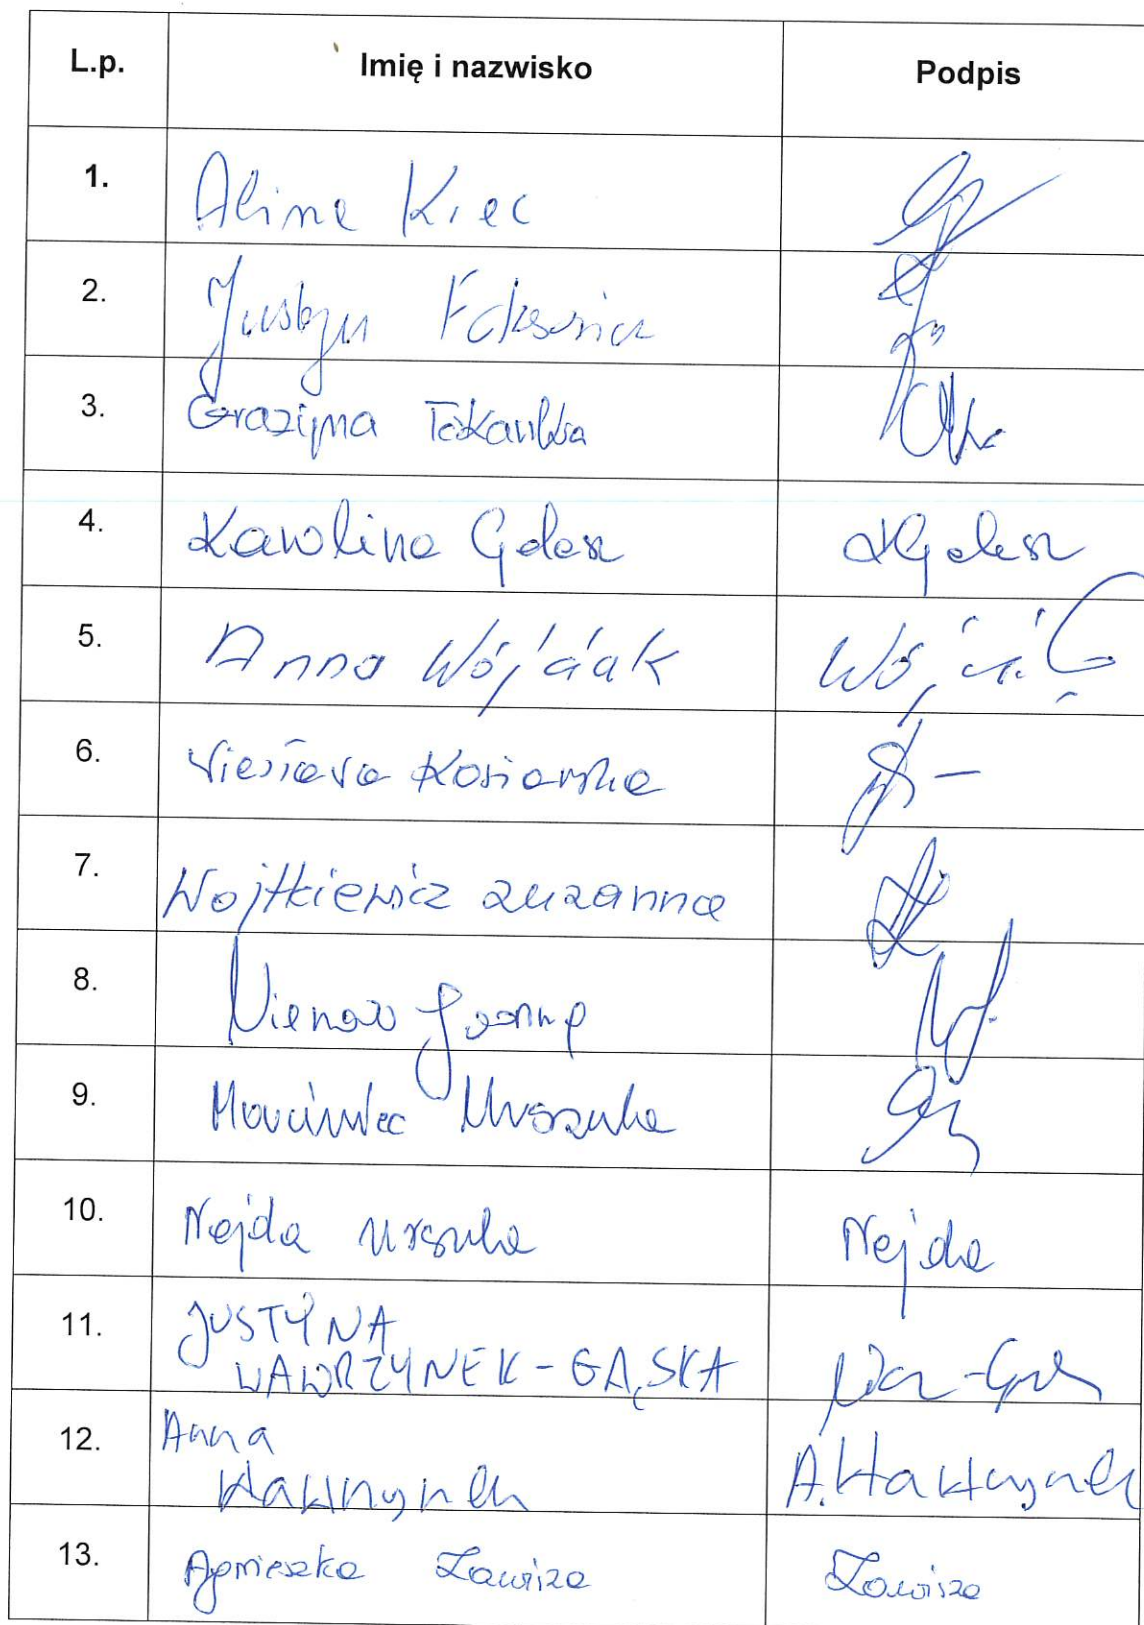 L.p. Imię i nazwisko Podpis
1. Alina Kiec
2. Justyna
3. Grażyna
4. Karolina Golesz KGolesz
5. Anna Wójciak Wójciak
6. Wiesława Kosiorska
7. Wojtkiewicz Zuzanna
8. Joanna
9. Marciniec Urszula
10. Nejda Urszula Nejda
11. JUSTYNA
WAWRZYNEK-GĄSKA
12. Anna
Wawrzynek A. Wawrzynek
13. Agnieszka Zawisza Zawisza